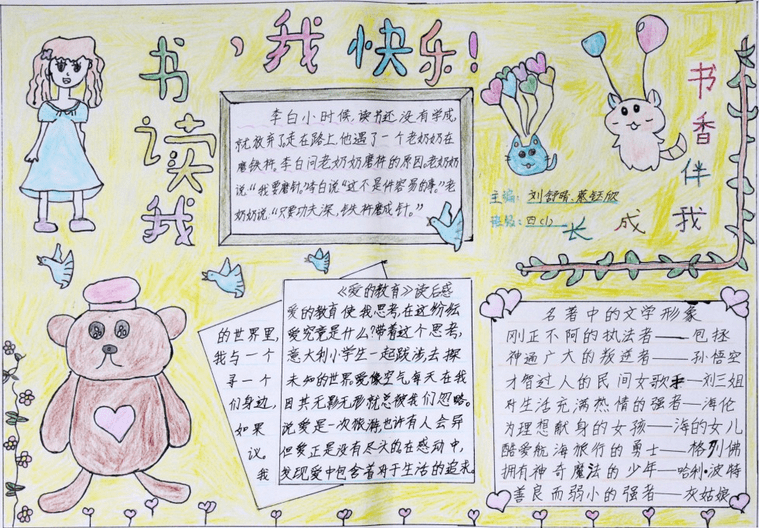 我读书,我快乐!
李白小时候,读书还没有学成,
就放弃了,走在路上,他遇了一个老奶奶在
磨铁杵。李白问老奶奶磨杵的原因,老奶奶
说“我要磨针。”李白说“这不是件容易的事。”老
奶奶说“只要功夫深,铁杵磨成针。”
主编:刘舒晴
班级:四(1)
书香伴我成长
《爱的教育》读后感
爱的教育使我思考,在这纷纭
的世界里,爱究竟是什么?带着这个思考,
我与一个意大利小学生一起跋涉去探
寻一个未知的世界爱像空气每天在我
们身边,因其无影无形就总被我们忽略。
如果说爱是一次旅游,也许有人会异
议,但爱正是没有尽头的,在感动中,
我发现爱中包含着对于生活的追求
名著中的文学形象
刚正不阿的执法者——包拯
神通广大的叛逆者——孙悟空
才智过人的民间女歌手—刘三姐
对生活充满热情的强者—海伦
为理想献身的女孩—海的女儿
酷爱航海旅行的勇士—格列佛
拥有神奇魔法的少年—哈利·波特
善良而弱小的强者—灰姑娘